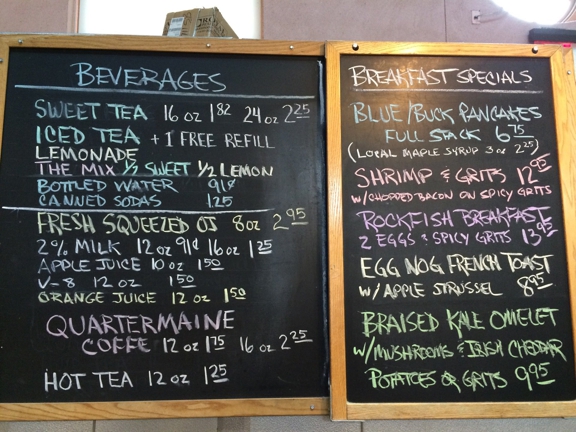 BEVERAGES
SWEET TEA 16 oz 1.82 24 oz 2.25
ICED TEA + 1 FREE REFILL
LEMONADE
THE MIX 1/2 SWEET 1/2 LEMON
BOTTLED WATER 91¢
CANNED SODAS 1.25
FRESH SQUEEZED OJ 8oz 2.95
2% MILK 12 oz 91¢ 16 oz 1.25
APPLE JUICE 10 oz 1.50
V-8 12 oz 1.50
ORANGE JUICE 12 oz 1.50
QUARTERMAINE
COFFE 12 oz 1.75 16 oz 2.25
HOT TEA 12 oz 1.25
BREAKFAST SPECIALS
BLUE/BUCK PANCAKES
FULL STACK 6.75
(LOCAL MAPLE SYRUP 3 oz 2.25)
SHRIMP & GRITS 12.95
W/CHOPPED BACON ON SPICY GRITS
ROCKFISH BREAKFAST
2 EGGS & SPICY GRITS 13.95
EGG NOG FRENCH TOAST
W/ APPLE STRUSSEL 8.95
BRAISED KALE OMELET
W/MUSHROOMS & IRISH CHEDDAR
POTATOES OR GRITS 9.95